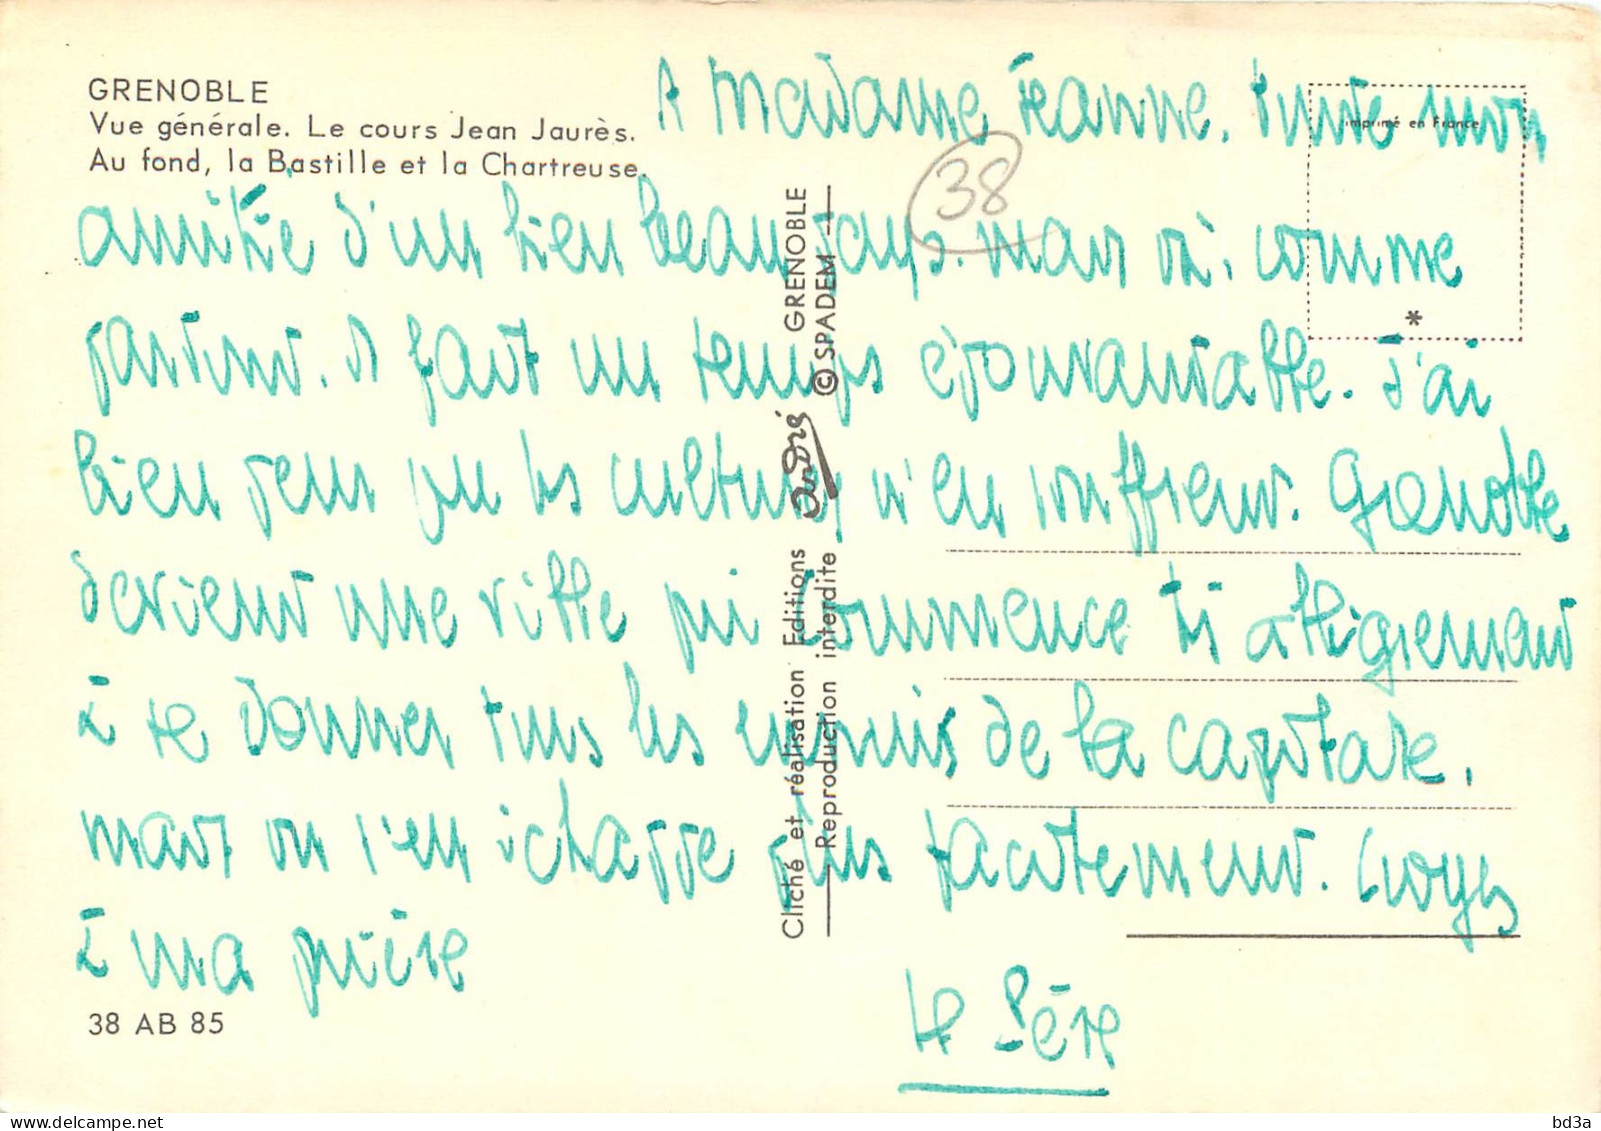 GRENOBLE
Vue générale. Le cours Jean Jaurès.
Au fond, la Bastille et la Chartreuse.
A Madame Jeanne. Toute mon
amitié d'un bien beau pays. mais où, comme
partout. il fait un temps épouvantable. J'ai
bien peur que les cultures n'en souffrent. Grenoble
devient une ville qui commence très allègrement
à se donner tous les ennuis de la capitale,
mais on s'en échappe plus facilement. Croyez
à ma prière
Le Père
38
imprimé en France
*
38 AB 85
Cliché et réalisation Editions André GRENOBLE
Reproduction interdite © SPADEM
bd3a